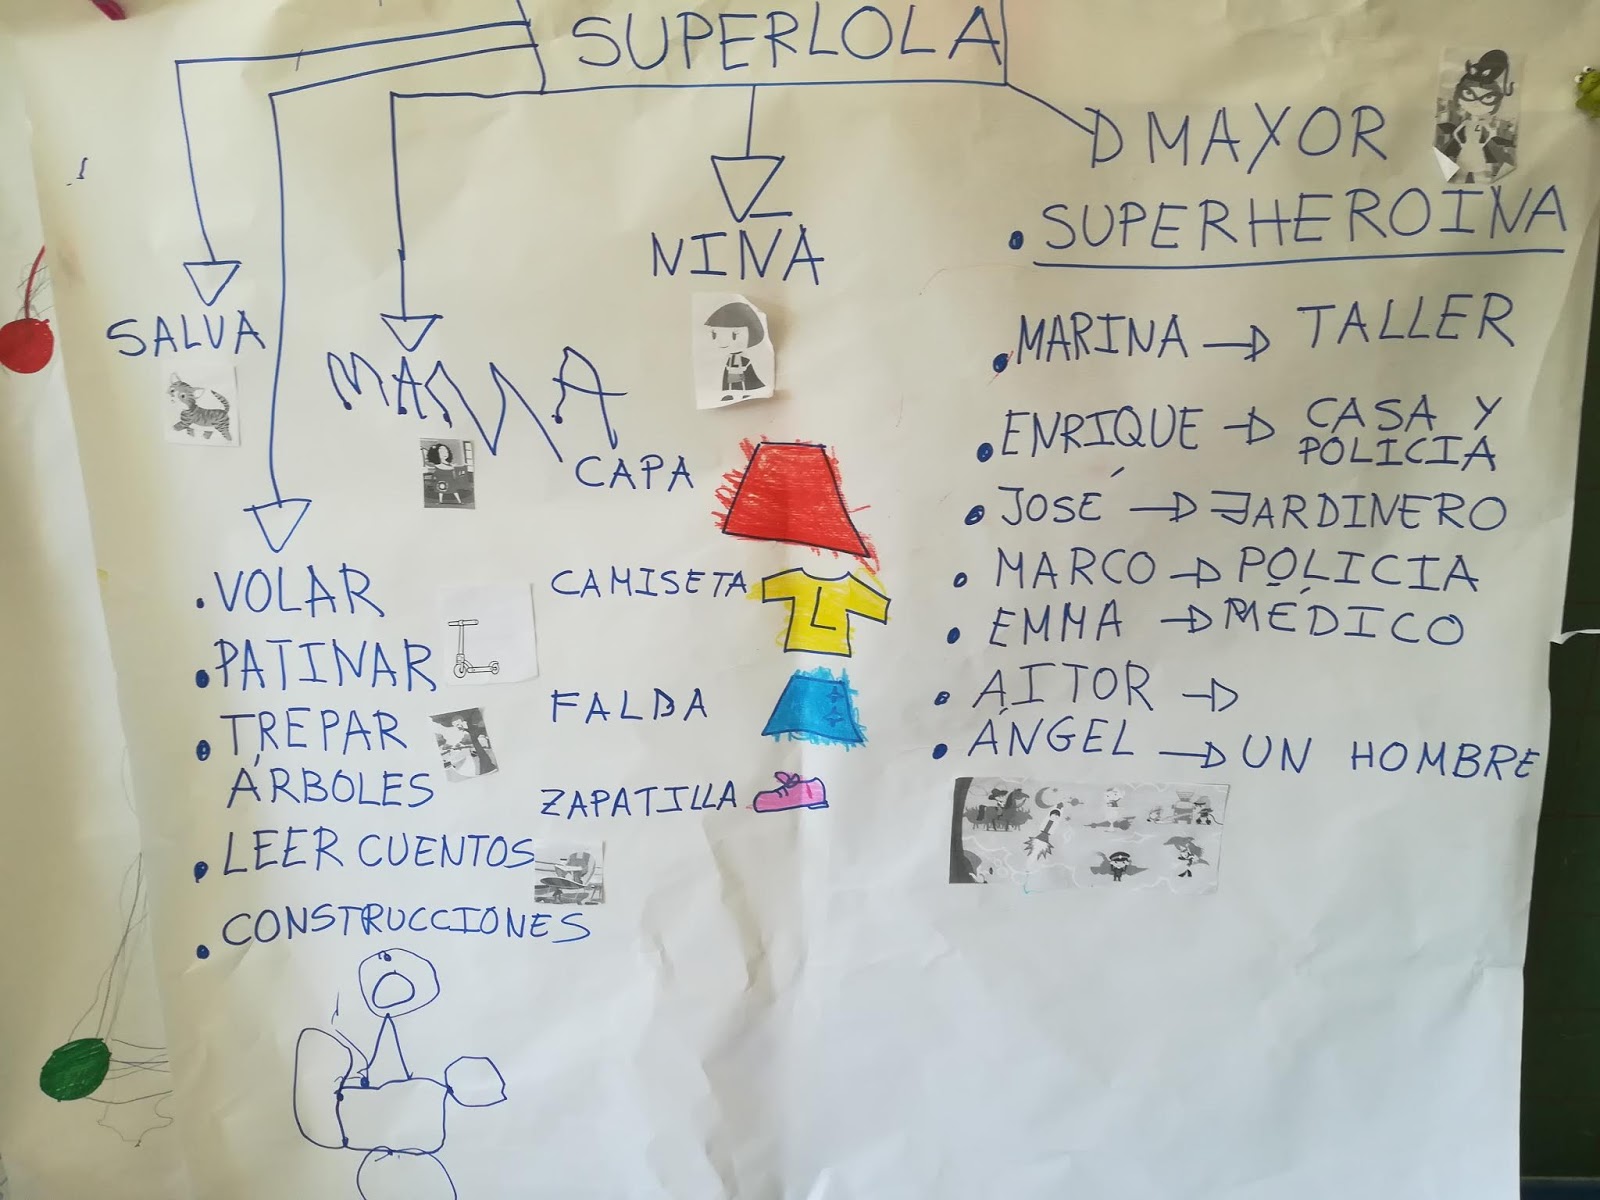 SUPERLOLA
SALVA
VOLAR
PATINAR
TREPAR
ÁRBOLES
LEER CUENTOS
CONSTRUCCIONES
MAMA
NINA
CAPA
CAMISETA
L
FALDA
ZAPATILLA
D MAYOR
SUPERHEROINA
MARINA → TALLER
ENRIQUE → CASA Y
POLICIA
JOSÉ → JARDINERO
MARCO → POLICIA
EMMA → MÉDICO
AITOR →
ÁNGEL → UN HOMBRE